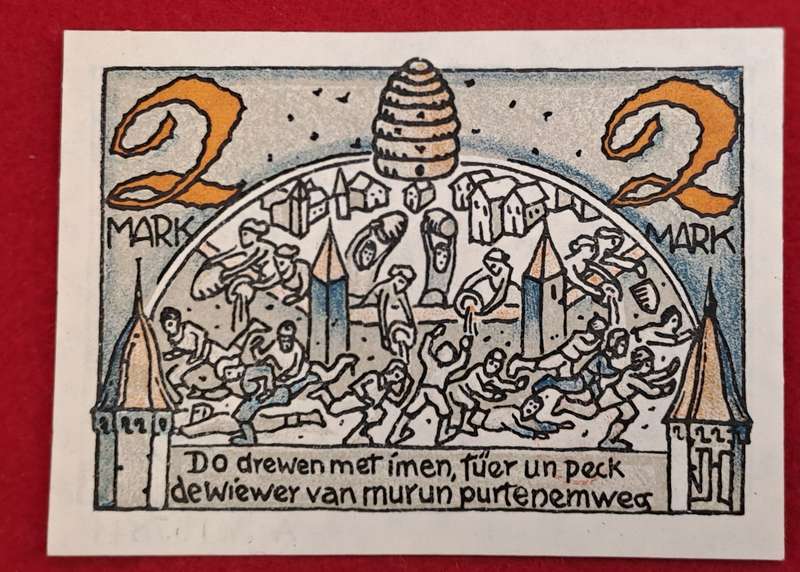 2 2
MARK MARK
Do drewen met imen, füer un peck
de wiewer van mur un purten em weg